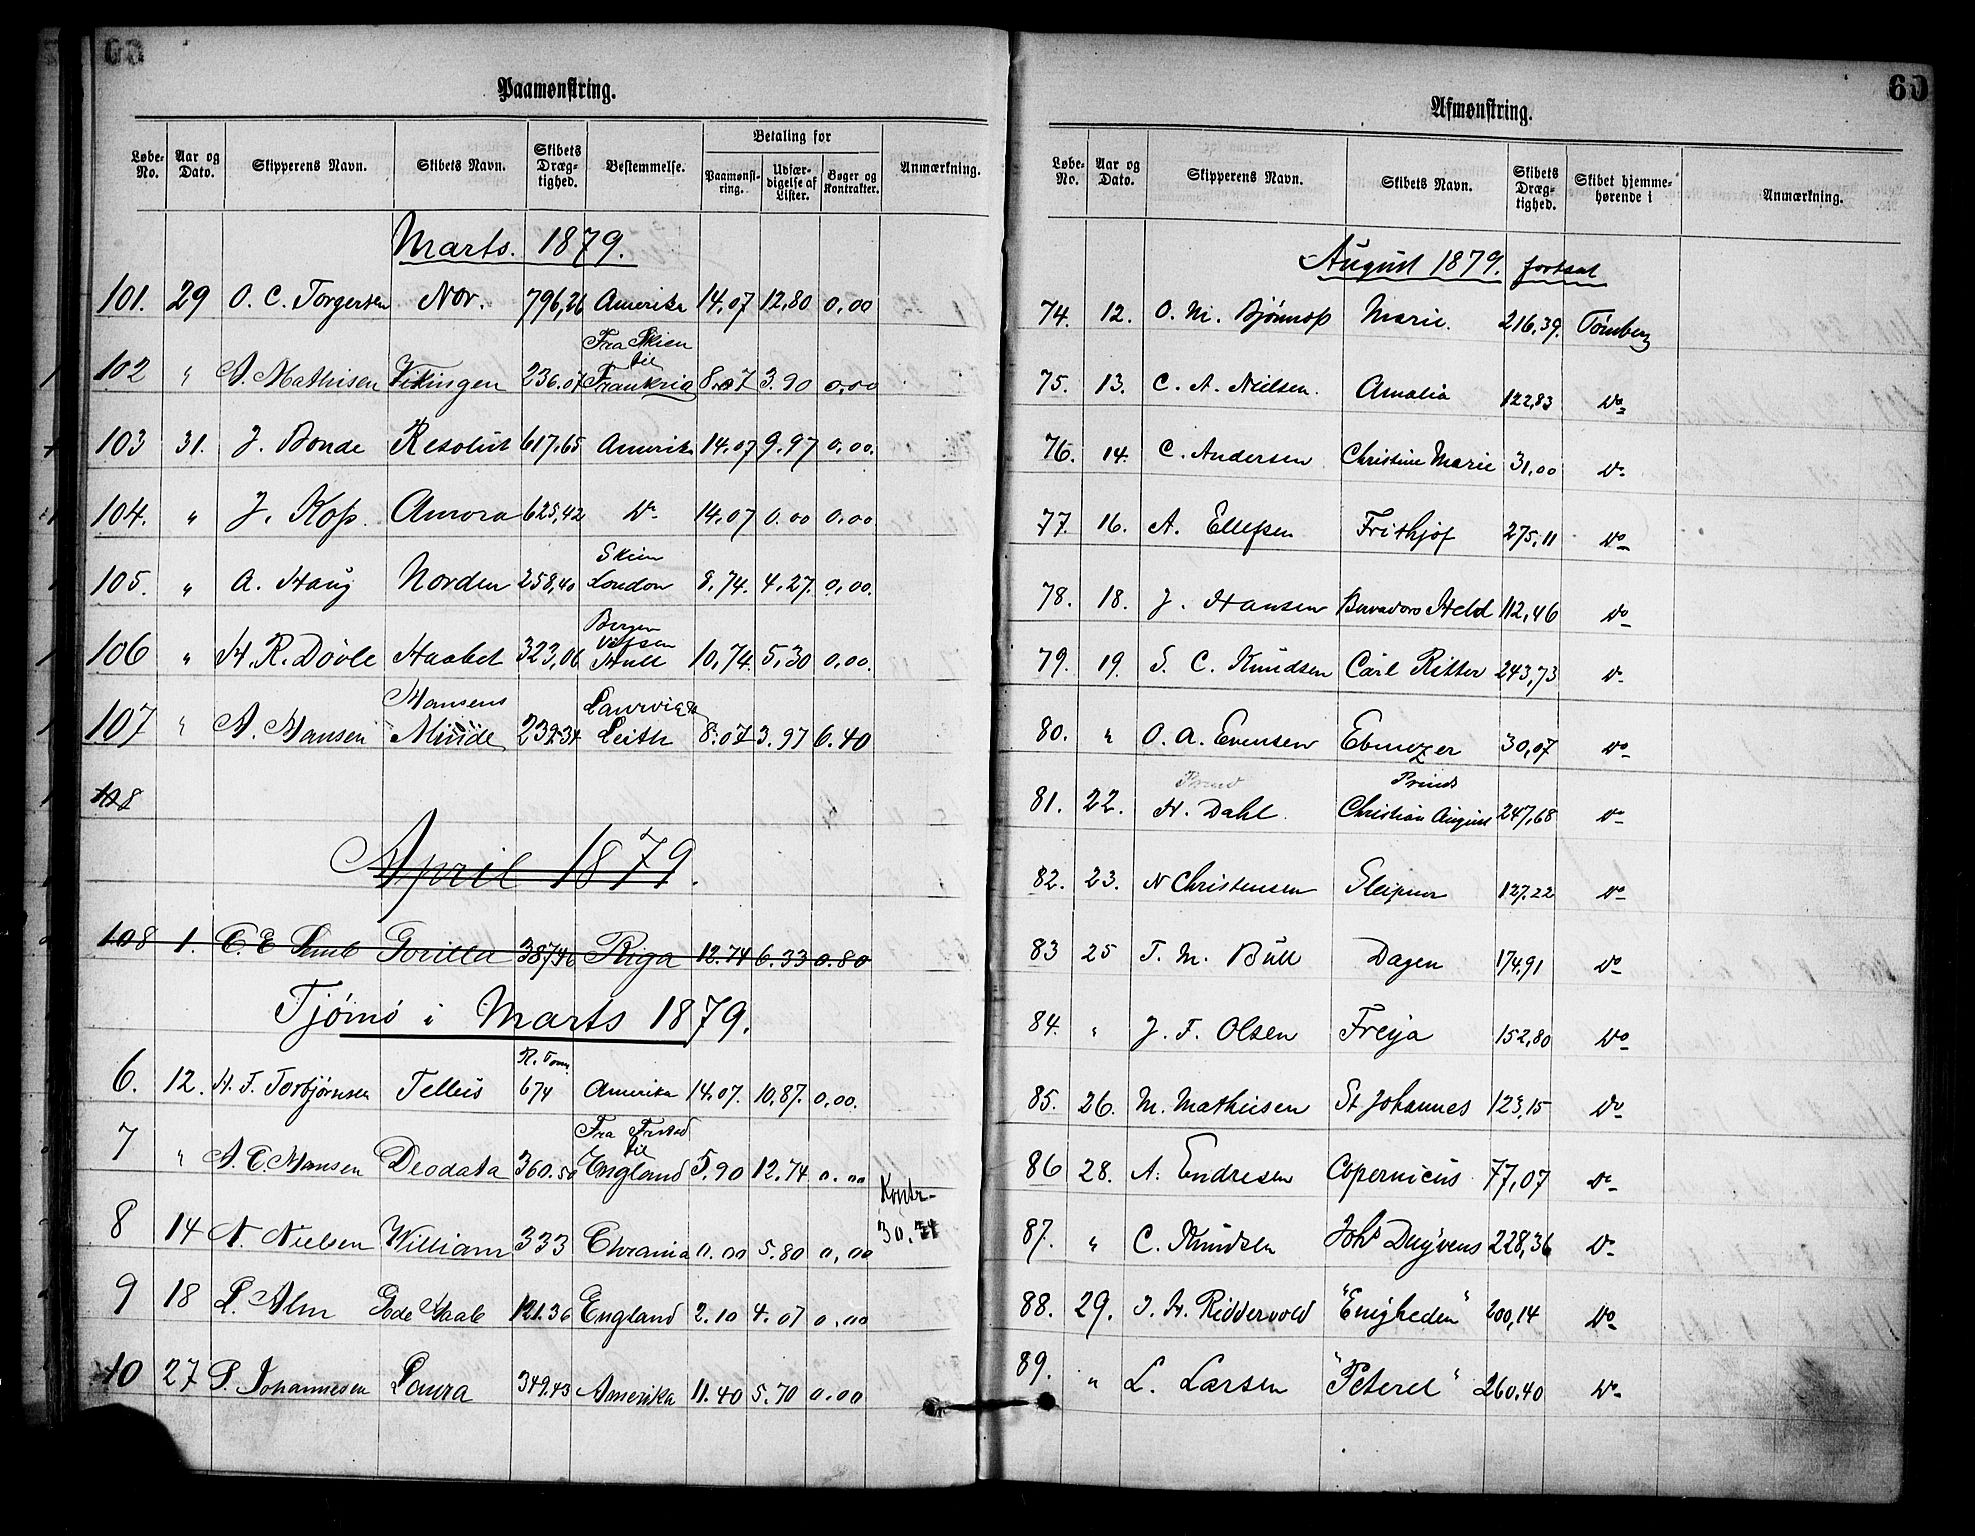 60
Paamønstring.
Løbe-No. Aar og Dato. Skipperens Navn. Skibets Navn. Skibets Dræg-tighed. Bestemmelse. Betaling for Paamønst-ring. Udfær-digelse af Lister. Bøger og Kontrakter. Anmærkning.
Marts. 1879.
101. 29 O. C. Torgersen Nor. 796,26 Amerika 14,07 12,80 0,00
Fra Skien til
102 " A. Mathisen Vikingen 236.07 Frankrig 8.07 3.90 0,00
103 31. J. Bonde Resolut 617.65 Amerika 14.07 9.97 0,00.
104. " J. Kop. Aurora 625,42 Do 14,07 0.00 0,00.
Skien
105. " A. Haug Norden 258,40 London 8,74. 4,27. 0,00.
Bergen
106 " H. R. Dövle Haabet 323,06 Hull 10,74. 5,30 0,00.
Hansens Laurvig
107 " A. Hansen Minde 239.34 Leith 8.07 3.97 6.40
108
April 1879.
108 1. C. E. Gorilla 387.46 Riga 12.74 6.33 0.80
Tjømø i Marts 1879.
R. Tons
6. 12. H. F. Torbjørnsen Tellus 674 Amerika 14,07. 10,87. 0,00.
Fra til
7 " A. C. Hansen Deodata 360.50 England 5.90 12.74 0.00
Kontr.
8 14 N. Nielsen William 333 0.00 5.80 0,00 30.
9 18 L. Alm Gode Haab 121.36 England 2.10 4.07 0.00
10 27 P. Johannesen Laura 349.43 Amerika 11.40 5.70 0.00
60
Afmønstring.
Løbe-No. Aar og Dato. Skipperens Navn. Skibets Navn. Skibets Dræg-tighed. Skibet hjemme-hørende i Anmærkning.
August 1879. fortsat
74. 12. O. M. Marie. 216,39. Tønsberg
75. 13. C. A. Nielsen. Amalia 122,83 Do
76. 14. C. Andersen Christine Marie 31,00 Do
77. 16. A. Ellefsen Frithjof 275,11 Do
78. 18. J. Hansen Held 112,46 Do
79. 19. S. C. Knudsen Carl Ritter 243,73 Do
80. " O. A. Evensen Ebenezer 30,07 Do
Prinds
81. 22. H. Dahl. Christian August 247,68 Do
82. 23. N Christensen Sleipner 127.22 Do
83 25 T. M. Bull Dagen 174.91 Do
84. " J. F. Olsen Freya 152,80 Do
85. 26. M. Mathisen St Johannes 123,15 Do
86 28. A. Endresen Copernicus 77,07 Do
87. " C. Knudsen Johs Duyvens 228,36 Do
88. 29. J. H. Riddervold "Enigheden" 200,14 Do
89. " L. Larsen "Peterel" 260,40 Do